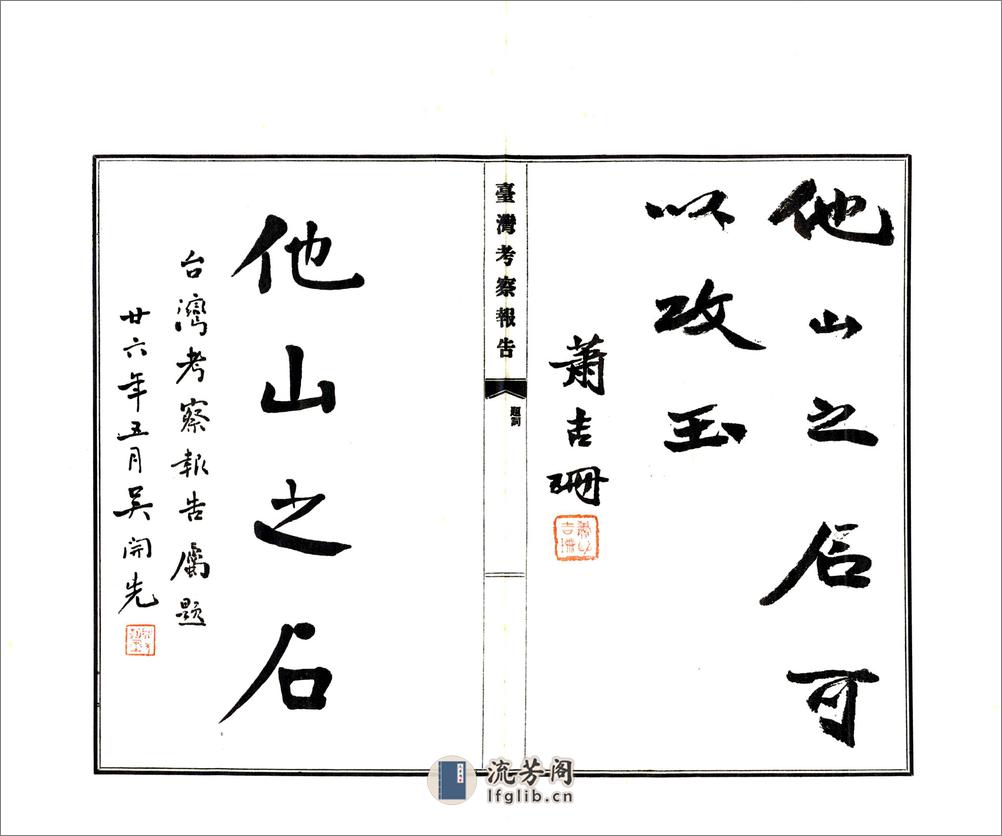 他山之石可
以攻玉
蕭吉珊
臺灣考察報告
題詞
他山之石
台灣考察報告屬題
廿六年五月吳開先
流芳阁
lfglib.cn